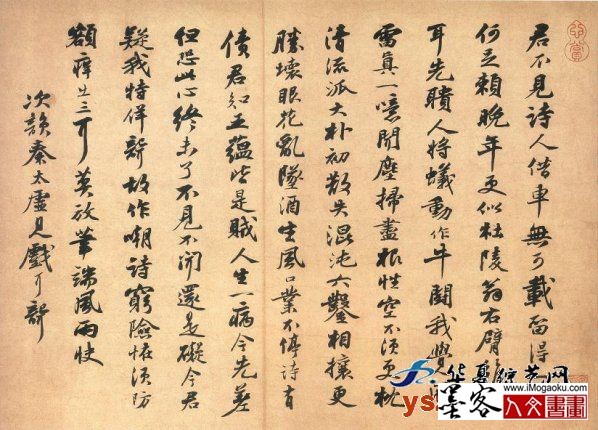 君不見詩人借車無可載留得
何足賴晚年更似杜陵翁右臂
耳先聵人將蟻動作牛鬭我覺
雷真一噫聞塵掃盡根性空不須更枕
清流派大朴初散失混沌六鑿相攘更
勝壞眼花亂墜酒生風口業不停詩有
債君知五蘊皆是賊人生一病今先差
但恐此心終未了不見不聞還是礙今君
疑我特佯聾故作嘲詩窮險怪須防
額癢出三耳莫放筆端風雨快
次韻秦太虛見戲耳聾
华夏综艺网
ys
墨客
www.iMogaoku.com
人文書畫